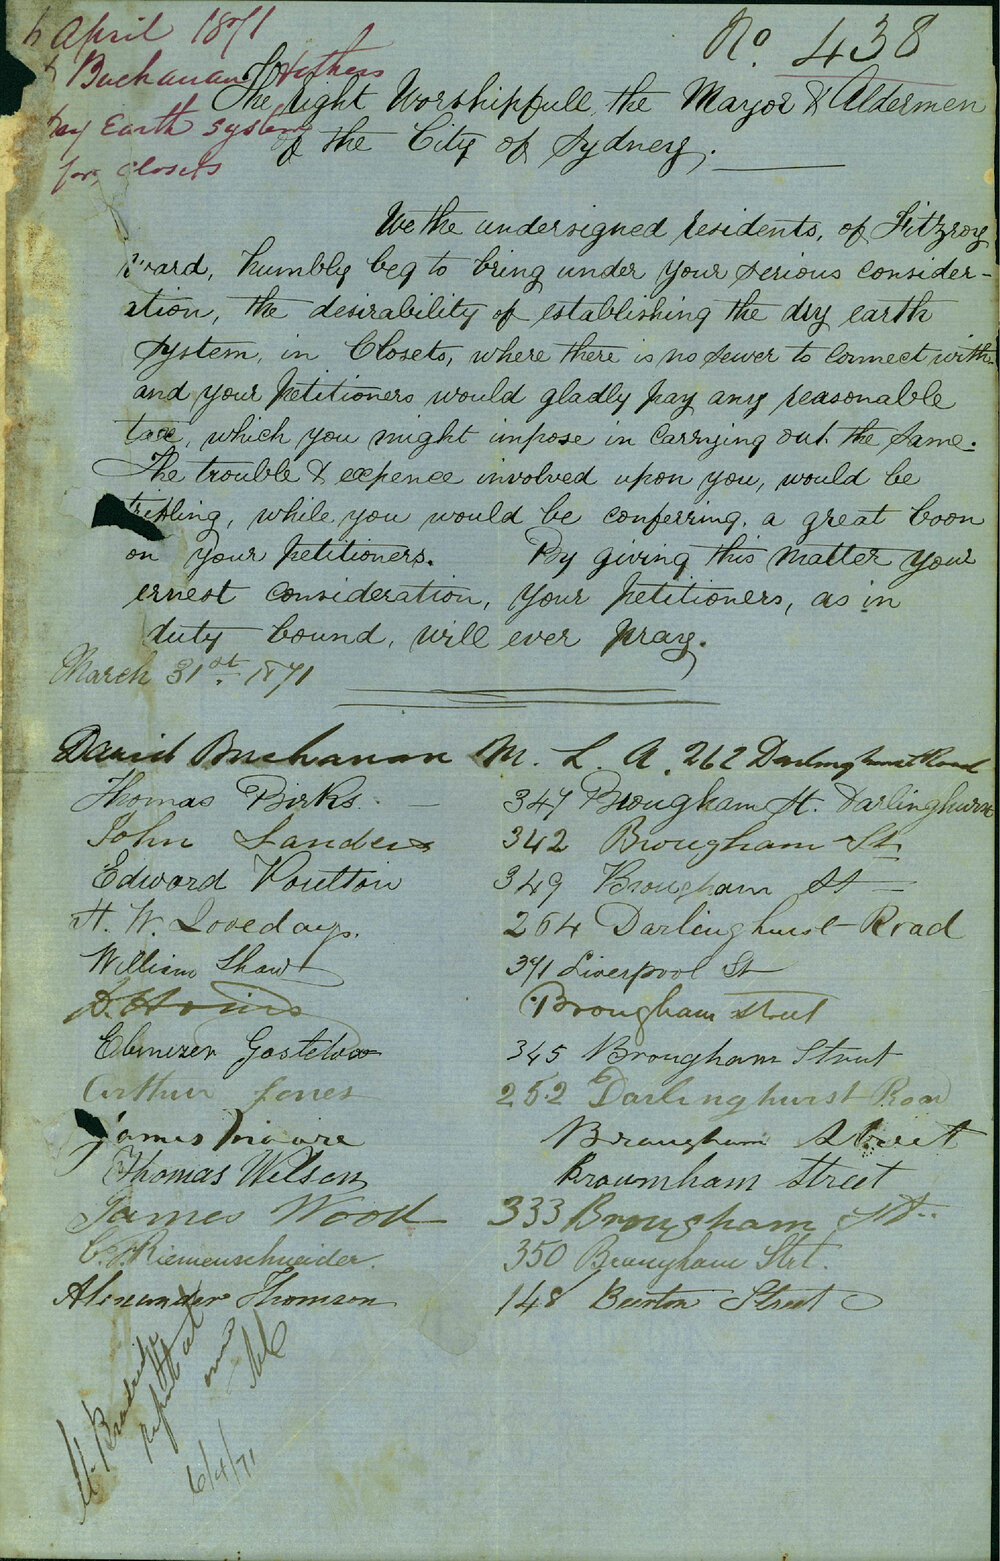 April 1871
No. 438
Buchanan & others
Earth system
for closets
The right Worshipfull, the Mayor & Aldermen
of the City of Sydney.
We the undersigned residents, of Fitzroy
Ward, humbly beg to bring under your serious consider-
ation, the desirability of establishing the dry earth
system, in Closets, where there is no sewer to connect with.
and your petitioners would gladly pay any reasonable
tax, which you might impose in carrying out the same.
The trouble & expence involved upon you, would be
trifling, while you would be conferring, a great boon
on your petitioners. By giving this matter your
ernest consideration, your petitioners, as in
duty bound, will ever pray.
March 31st 1871
David Buchanan M. L. A. 262 Darlinghurst Road
Thomas Birks. 347 Brougham St. Darlinghurst
John Sanders 342 Brougham St.
Edward Poulton 349 Brougham St
H. W. Loveday. 264 Darlinghurst Road
William Shaw 371 Liverpool St
Brougham street
Ebenezer Gostelow 345 Brougham Street
Arthur Jones 252 Darlinghurst Road
James Moore Brougham Street
Thomas Wilson Broumham Street
James Wood 333 Brougham St.
C. Riemenschneider. 350 Brougham Strt.
Alexander Thomson 148 Burton Street
Mr. Bradridge
report at
once
6/4/71